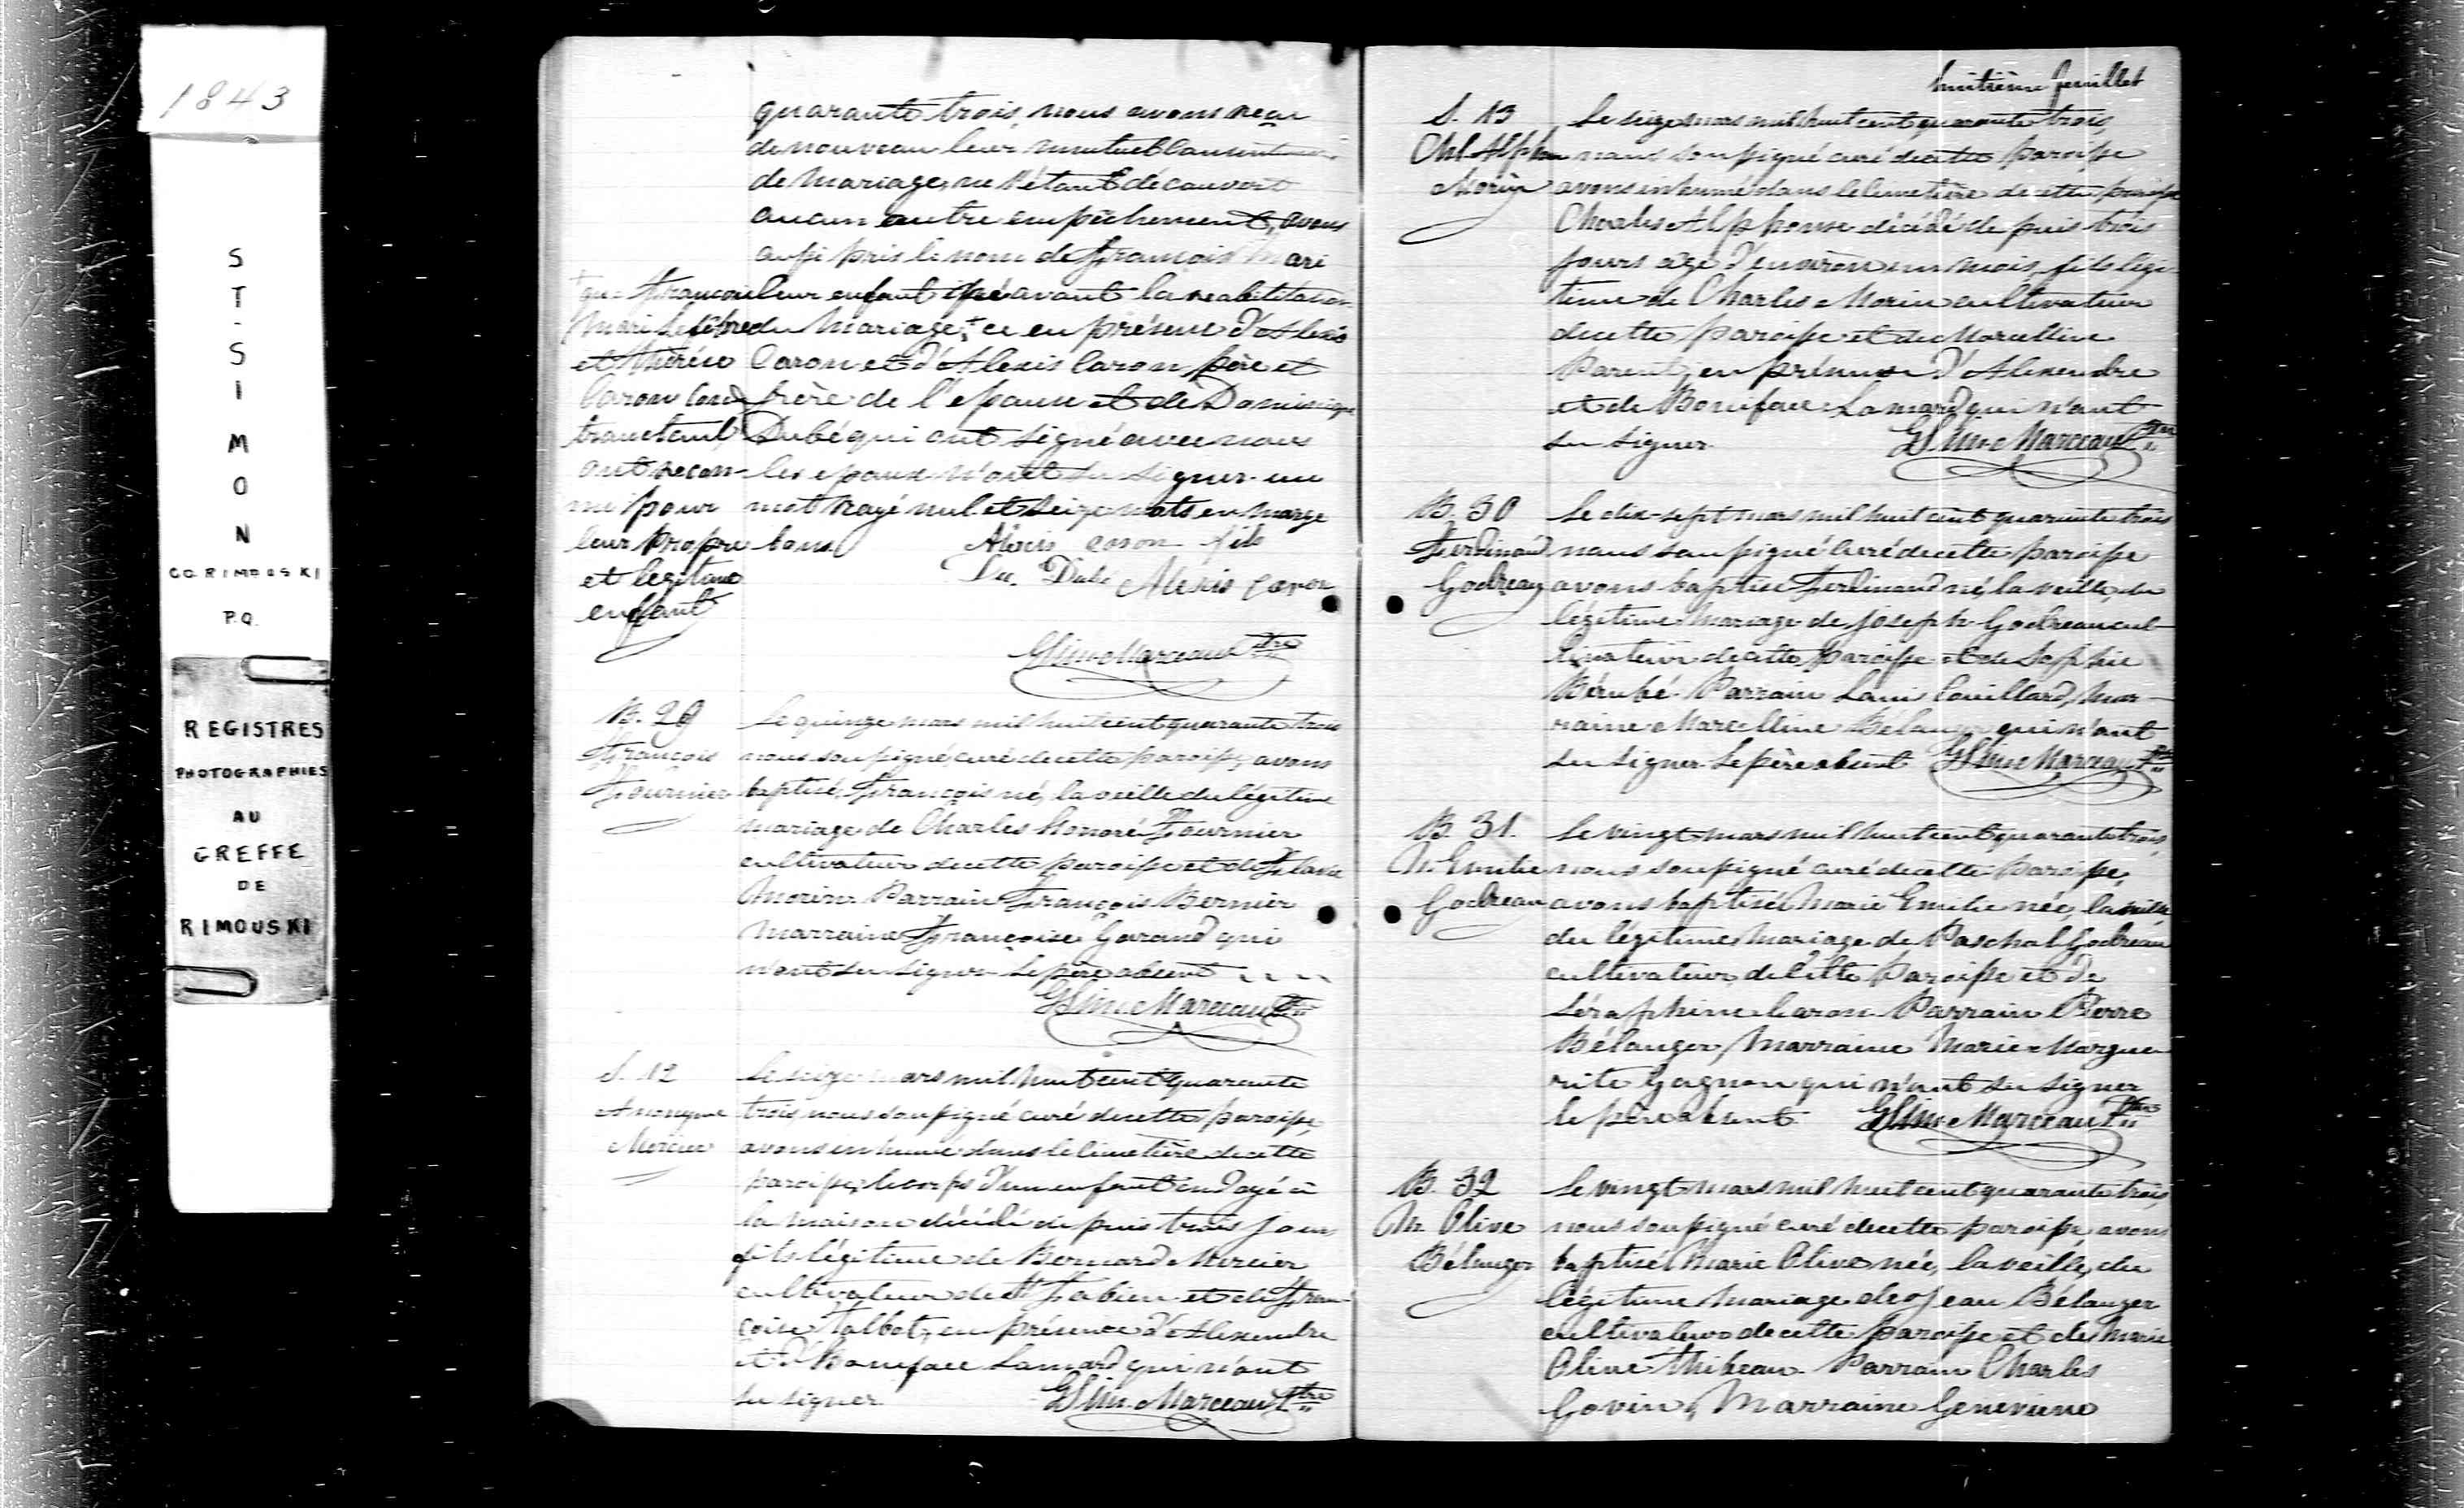 1843
ST-SIMON
CO. RIMOUSKI
P.Q.
REGISTRES
PHOTOGRAPHIES
AU
GREFFE
DE
RIMOUSKI
quarante trois, nous avons reçu
de nouveau leur mutuel consentement
de mariage, ne s'étant découvert
aucun autre empêchement, avons
aussi pris le nom de François Mari
leur enfant né avant la réabilitation
du mariage, + ce en présence d'Alexis
Caron et d'Alexis Caron père et
frère de l'epouse et de Dominique
Dubé qui ont signé avec nous
les epoux n'ont su signer. un
mot rayé nul et seize mots en marge
bons
+ que François
Mari Lefebvre
et Thérèse
Caron con
tractant,
ont recon-
nu pour
leur propre
et legitime
enfant
Alexis caron fils
Du. Dubé Alexis Caron
GSim. Marceau Ptre
B. 29
François
Fournier
Le quinze mars mil huit cent quarante trois
nous soussigné curé de cette paroisse, avons
baptisé, François né, la veille du légitime
mariage de Charles Honoré Fournier
cultivateur de cette paroisse et de Flavie
Morin. Parrain François Bernier
Marraine Françoise Garand qui
n'ont su signer Le père absent
GSim. Marceau Ptre
S. 12
Anonyme
Mercier
Le seize mars mil huit cent quarante
trois, nous soussigné curé de cette paroisse,
avons inhumé dans le cimetière de cette
paroisse, le corps d'un enfant ondoyé à
la maison décédé depuis trois jours
fils légitime de Bernard Mercier
cultivateur de St Fabien et de Fran-
çoise Talbot, en présence d'Alexendre
et d Boniface Lamard qui n'ont
su signer GSim. Marceau Ptre
huitième feuillet
S. 13
Chl. Alphse
Morin
Le seize mars mil huit cent quarante trois,
nous soussigné curé de cette paroisse
avons inhumé dans le cimetière de cette paroisse
Charles Alphonse décédé depuis trois
jours agé d'environ un mois, fils légi-
time de Charles Morin cultivateur
de cette paroisse et de Marcelline
Parent, en présence d'Alexendre
et de Boniface Lamard qui n'ont
su signer. GSim. Marceau Ptre
B. 30
Ferdinand
Godreau
Le dix-sept mars mil huit cent quarante trois
nous soussigné curé de cette paroisse
avons baptisé Ferdinand né, la veille, du
légitime mariage de Joseph Godreau cul-
tivateur de cette paroisse et de Sophie
Bérubé. Parrain Couillard, Mar-
raine Marcelline qui n'ont
su signer. Le père absent GSim. Marceau Ptre
B. 31.
M. Emilie
Godreau
Le vingt mars mil huit cent quarante trois,
nous soussigné curé de cette paroisse,
avons baptisé Marie Emilie née, la veille,
du légitime mariage de Paschal Godreau
cultivateur de cette paroisse et de
Séraphine Caron. Parrain Pierre
Bélanger, Marraine Marie Margue-
rite Gagnon qui n'ont su signer
le père absent. GSim. Marceau Ptre
B. 32
M. Olive
Bélanger
Le vingt mars mil huit cent quarante trois,
nous soussigné curé de cette paroisse, avons
baptisé Marie Olive née, la veille, du
légitime mariage de Jean Bélanger
cultivateur de cette paroisse et de Marie
Olive Thibeau. Parrain Charles
Govin, Marraine Genevieve